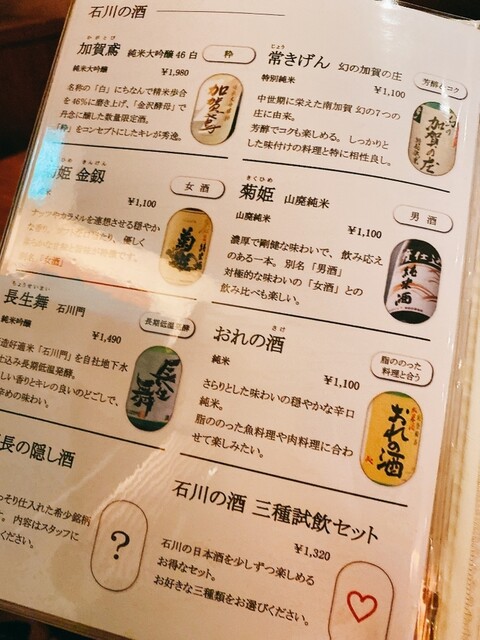 石川の酒
かがとび
加賀鳶 純米大吟醸46 白
粋
純米大吟醸
¥1,980
名称の「白」にちなんで精米歩合
を46%に磨き上げ、「金沢酵母」で
丹念に醸した数量限定酒。
「粋」をコンセプトにしたキレが秀逸。
加賀鳶
じょう
常きげん 幻の加賀の庄
特別純米
¥1,100
芳醇とコク
中世期に栄えた南加賀 幻の7つの
庄に由来。
芳醇でコクも楽しめる。しっかりと
した味付けの料理と特に相性良し。
加賀の庄
ひめ きんげん
姫 金釼
女酒
¥1,100
ナッツやカラメルを連想させる穏やか
優しく
「女酒」
菊姫
きくひめ
菊姫 山廃純米
男酒
山廃純米
¥1,100
濃厚で剛健な味わいで、飲み応え
のある一本。別名「男酒」
対極的な味わいの「女酒」との
飲み比べも楽しい。
純米酒
ちょうせいまい
長生舞 石川門
長期低温発酵
純米吟醸
¥1,490
造好適米「石川門」を自社地下水
仕込み長期低温発酵。
しい香りとキレの良いのどごしで、
辛めの味わい。
長生舞
さけ
おれの酒
脂ののった
料理と合う
純米
¥1,100
さらりとした味わいの穏やかな辛口
純米。
脂ののった魚料理や肉料理に合わ
せて楽しみたい。
おれの酒
長の隠し酒
っそり仕入れた希少銘柄
内容はスタッフに
ください。
?
石川の酒 三種試飲セット
¥1,320
石川の日本酒を少しずつ楽しめる
お得なセット。
お好きな三種類をお選びください。